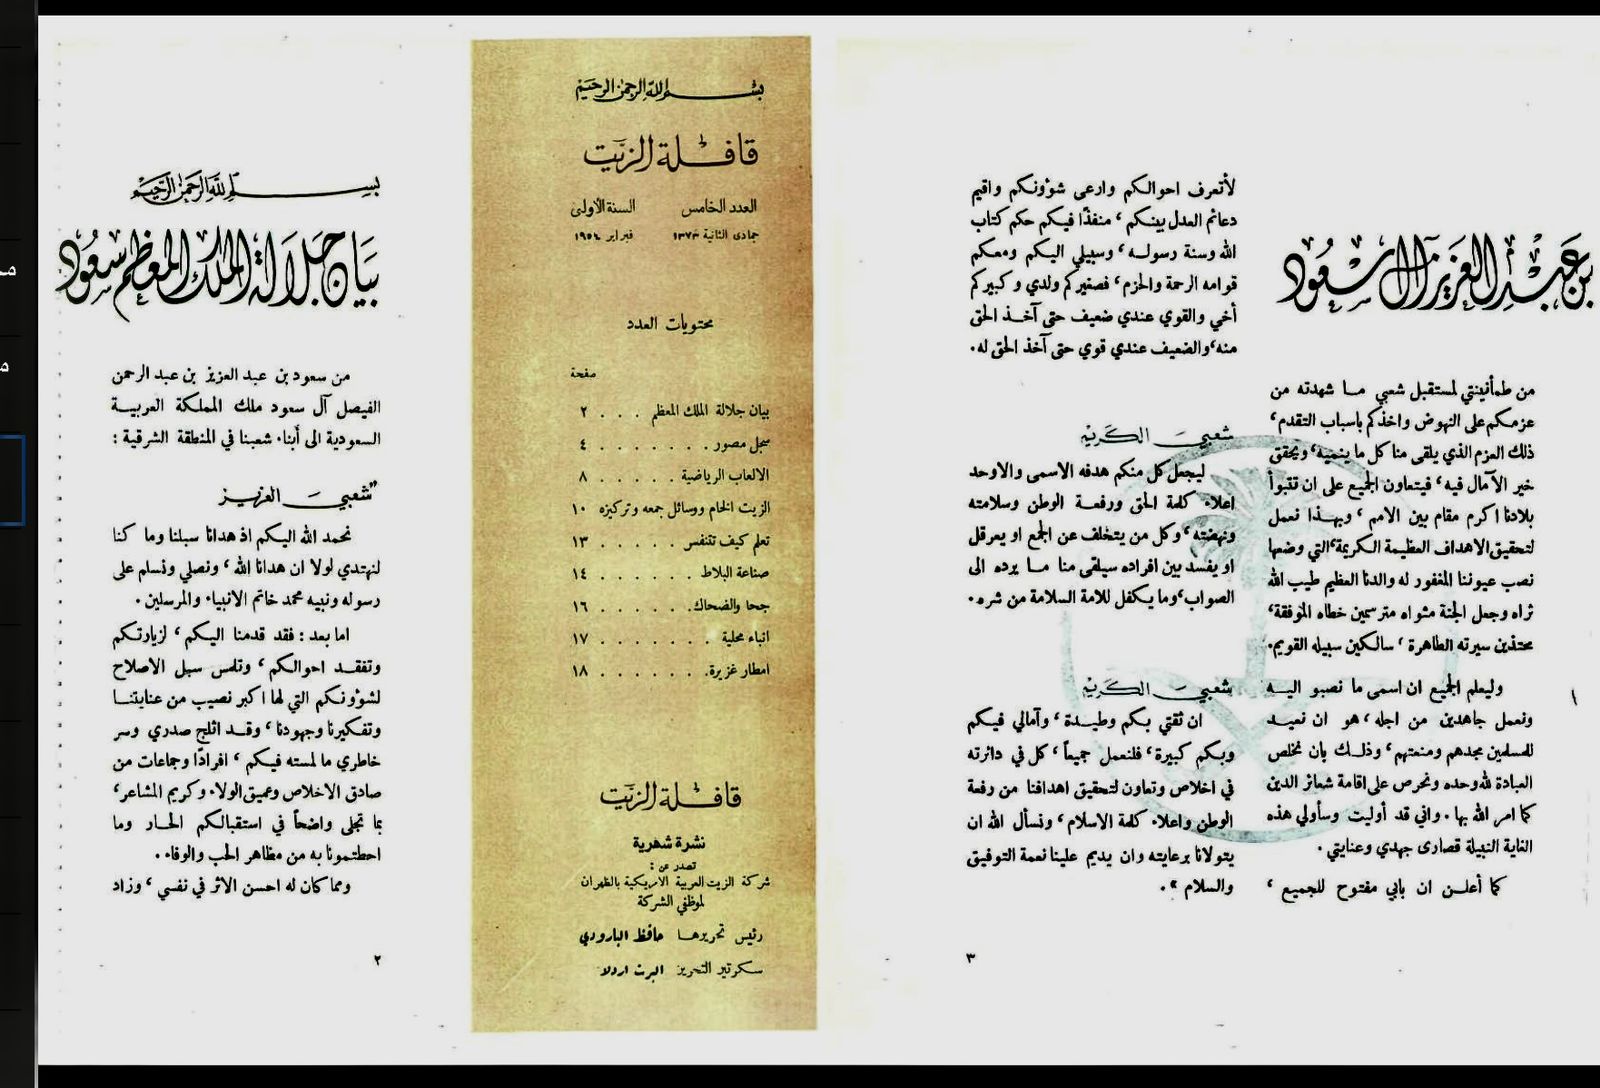 بسم الله الرحمن الرحيم
قافلة الزيت
العدد الخامس السنة الأولى
جمادى الثانية ١٣٧٣ فبراير ١٩٥٤
محتويات العدد
صفحة
بيان جلالة الملك المعظم . . . ٢
سجل مصور . . . . . . . ٤
الالعاب الرياضية . . . . . ٨
الزيت الخام ووسائل جمعه وتركيزه ١٠
تعلم كيف تتنفس . . . . . ١٣
صناعة البلاط . . . . . . ١٤
جحا والضحاك . . . . . . ١٦
انباء محلية . . . . . . . ١٧
امطار غزيرة . . . . . . ١٨
قافلة الزيت
نشرة شهرية
تصدر عن :
شركة الزيت العربية الأمريكية بالظهران
لموظفي الشركة
رئيس تحريرها حافظ البارودي
سكرتير التحرير البرت اردلا
بسم الله الرحمن الرحيم
بيان جلالة الملك المعظم سعود
من سعود بن عبد العزيز بن عبد الرحمن
الفيصل آل سعود ملك المملكة العربية
السعودية الى أبناء شعبنا في المنطقة الشرقية :
"شعبي العزيز
نحمد الله اليكم اذ هدانا سبلنا وما كنا
لنهتدي لولا ان هدانا الله ، ونصلي ونسلم على
رسوله ونبيه محمد خاتم الانبياء والمرسلين .
اما بعد : فقد قدمنا اليكم ، لزيارتكم
وتفقد احوالكم ، وتلمس سبل الاصلاح
لشؤونكم التي لها اكبر نصيب من عنايتنا
وتفكيرنا وجهودنا ، وقد اثلج صدري وسر
خاطري ما لمسته فيكم ، افرادًا وجماعات من
صادق الاخلاص وعميق الولاء وكريم المشاعر ،
بما تجلى واضحاً في استقبالكم الحار وما
احطتمونا به من مظاهر الحب والوفاء .
ومما كان له احسن الاثر في نفسي ، وزاد
٢
بن عبد العزيز آل سعود
من طمأنينتي لمستقبل شعبي ما شهدته من
عزمكم على النهوض واخذكم باسباب التقدم ،
ذلك العزم الذي يلقى منا كل ما ينميه ، ويحقق
خير الآمال فيه ، فيتعاون الجميع على ان تتبوأ
بلادنا اكرم مقام بين الامم ، وبهذا نعمل
لتحقيق الاهداف العظيمة الكريمة ، التي وضعها
نصب عيوننا المغفور له والدنا العظيم طيب الله
ثراه وجعل الجنة مثواه مترسمين خطاه الموفقة ،
محتذين سيرته الطاهرة ، سالكين سبيله القويم .
وليعلم الجميع ان اسمى ما نصبو اليه
ونعمل جاهدين من اجله ، هو ان نعيد
للمسلمين مجدهم ومنعتهم ، وذلك بان نخلص
العبادة لله وحده ونحرص على اقامة شعائر الدين
كما امر الله بها . واني قد أوليت وسأولي هذه
الغاية النبيلة قصارى جهدي وعنايتي .
كما أعلن ان بابي مفتوح للجميع ،
لأتعرف احوالكم وارعى شؤونكم واقيم
دعائم العدل بينكم ، منفذًا فيكم حكم كتاب
الله وسنة رسوله ، وسبيلي اليكم ومعكم
قوامه الرحمة والحزم ، فصغيركم ولدي وكبيركم
أخي والقوي عندي ضعيف حتى آخذ الحق
منه ، والضعيف عندي قوي حتى آخذ الحق له .
شعبي الكريم
ليجعل كل منكم هدفه الاسمى والاوحد
اعلاء كلمة الحق ورفعة الوطن وسلامته
ونهضته ، وكل من يتخلف عن الجمع او يعرقل
او يفسد بين افراده سيلقى منا ما يرده الى
الصواب ، وما يكفل للامة السلامة من شره .
شعبي الكريم
ان ثقتي بكم وطيدة ، وآمالي فيكم
وبكم كبيرة ، فلنعمل جميعاً ، كل في دائرته
في اخلاص وتعاون لتحقيق اهدافنا من رفعة
الوطن واعلاء كلمة الاسلام ، ونسأل الله ان
يتولانا برعايته وان يديم علينا نعمة التوفيق
والسلام » .
٣